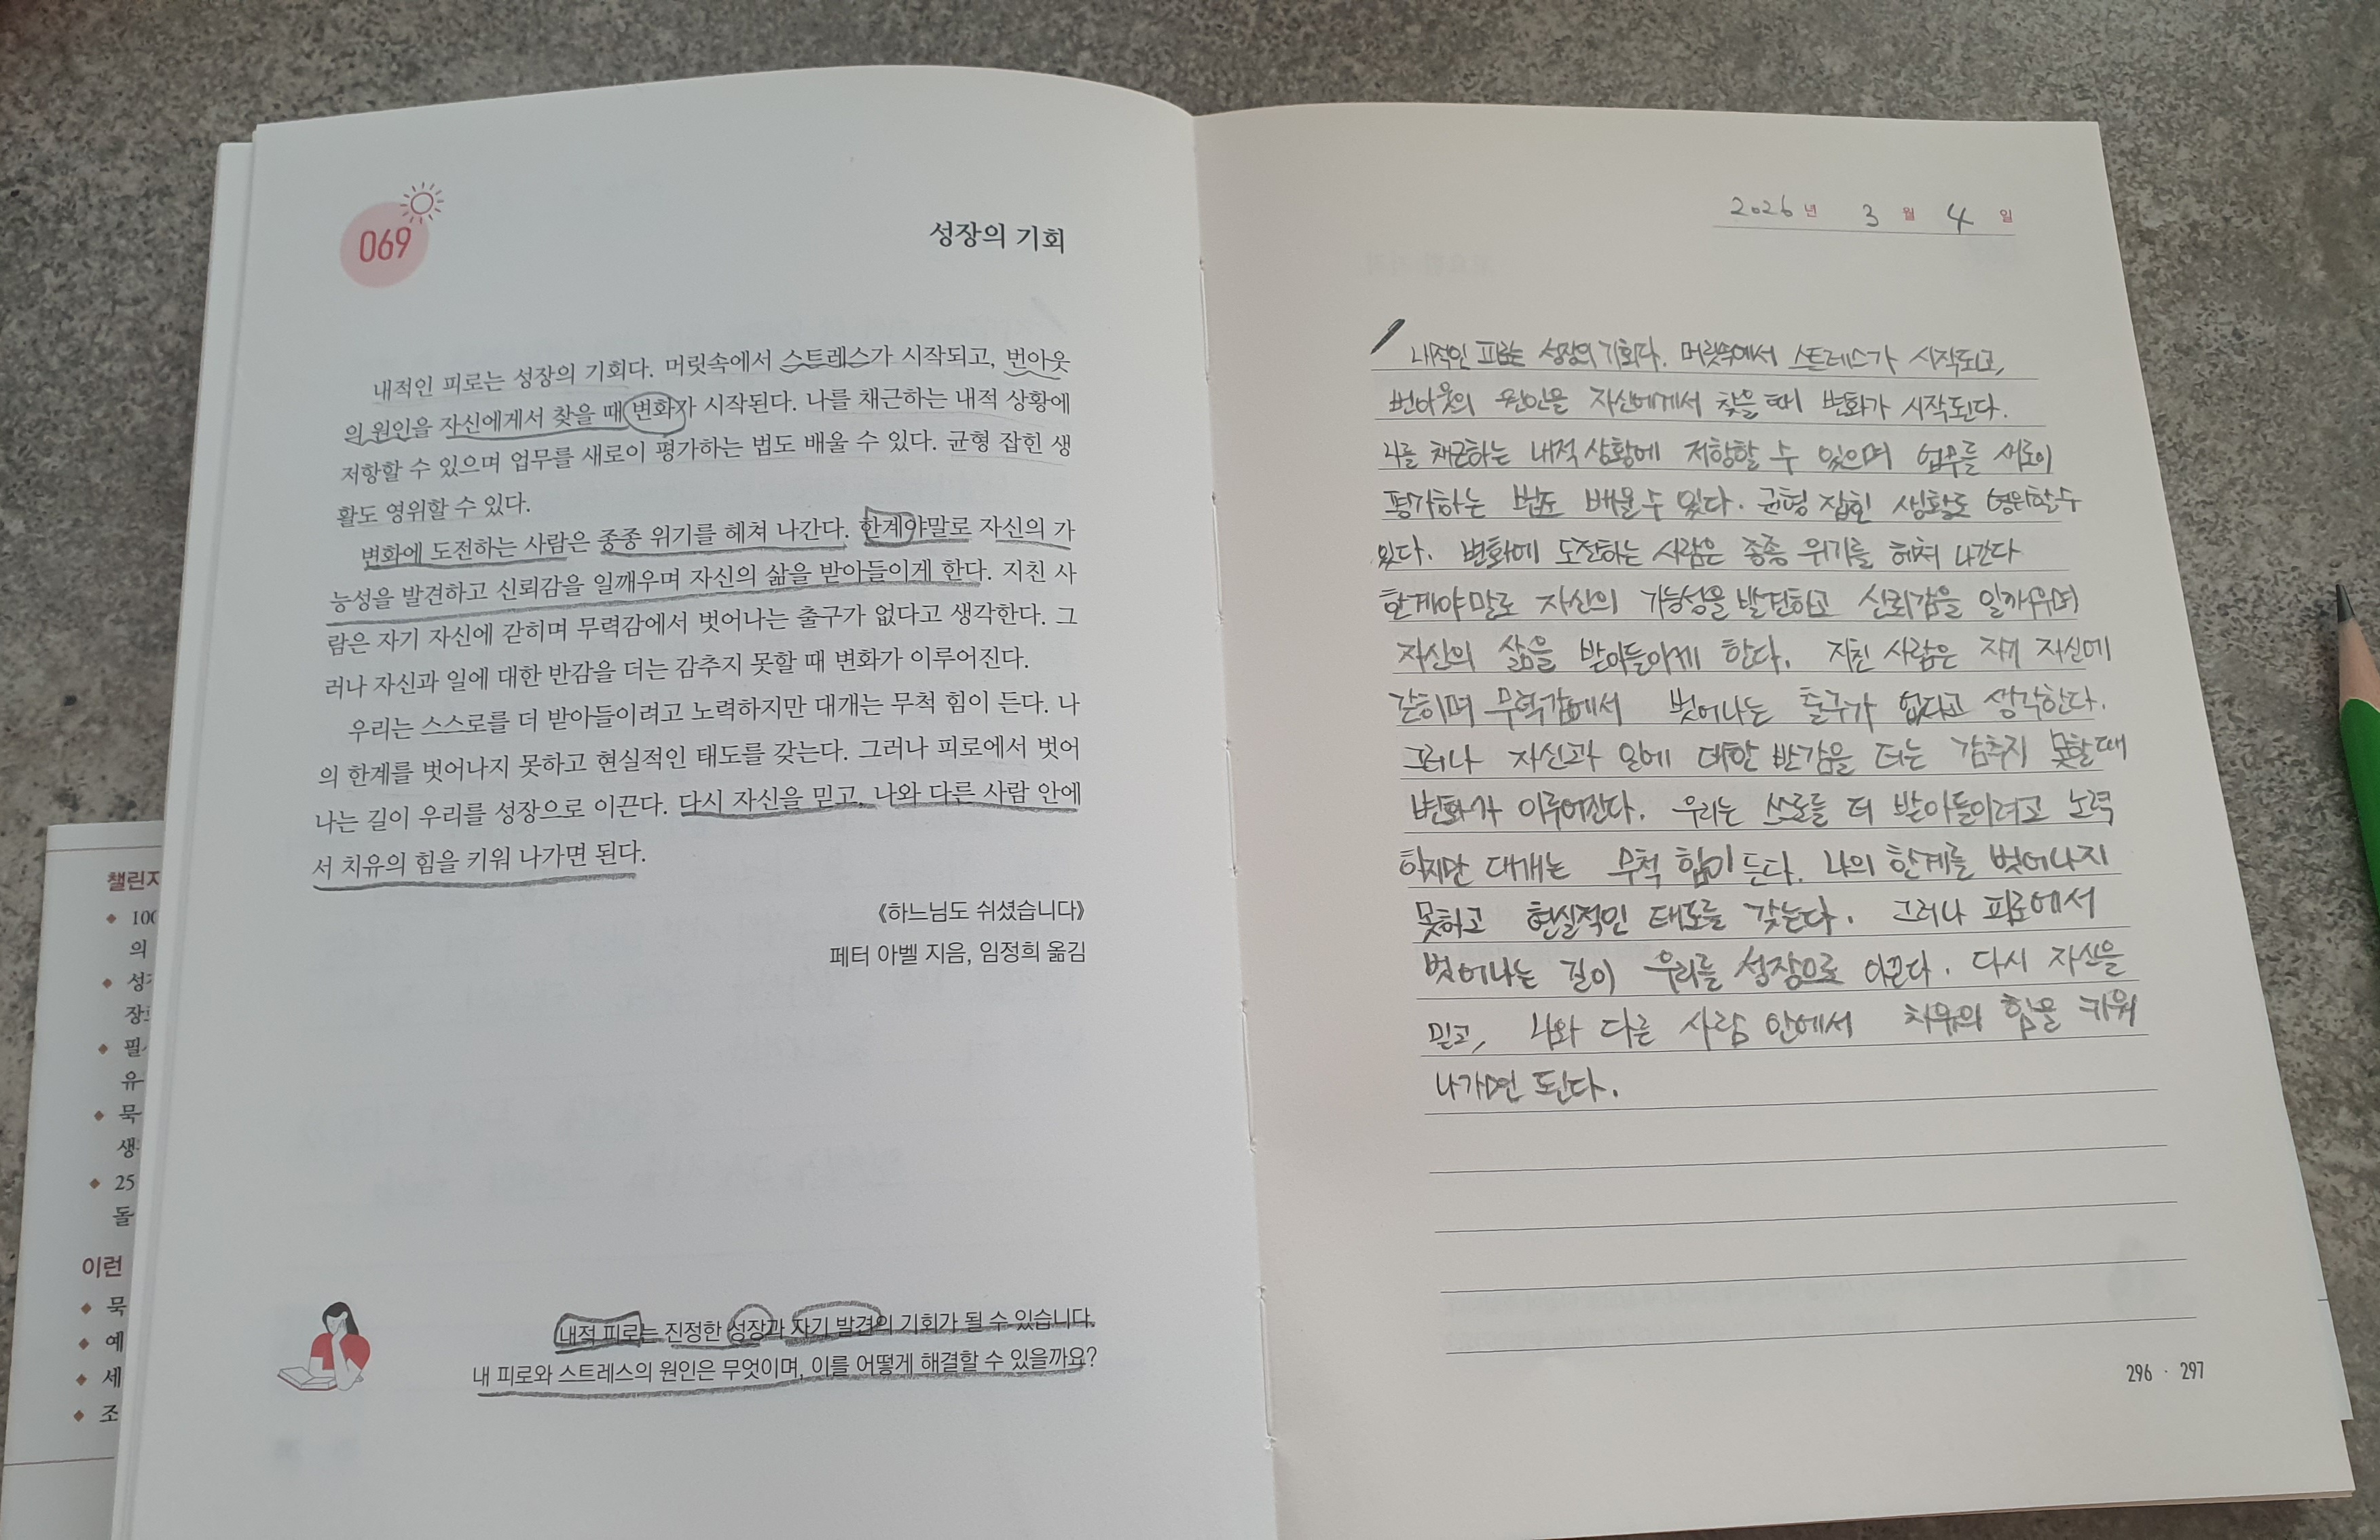 069
성장의 기회
내적인 피로는 성장의 기회다. 머릿속에서 스트레스가 시작되고, 번아웃
의 원인을 자신에게서 찾을 때 변화가 시작된다. 나를 채근하는 내적 상황에
저항할 수 있으며 업무를 새로이 평가하는 법도 배울 수 있다. 균형 잡힌 생
활도 영위할 수 있다.
변화에 도전하는 사람은 종종 위기를 헤쳐 나간다. 한계야말로 자신의 가
능성을 발견하고 신뢰감을 일깨우며 자신의 삶을 받아들이게 한다. 지친 사
람은 자기 자신에 갇히며 무력감에서 벗어나는 출구가 없다고 생각한다. 그
러나 자신과 일에 대한 반감을 더는 감추지 못할 때 변화가 이루어진다.
우리는 스스로를 더 받아들이려고 노력하지만 대개는 무척 힘이 든다. 나
의 한계를 벗어나지 못하고 현실적인 태도를 갖는다. 그러나 피로에서 벗어
나는 길이 우리를 성장으로 이끈다. 다시 자신을 믿고, 나와 다른 사람 안에
서 치유의 힘을 키워 나가면 된다.
《하느님도 쉬셨습니다》
페터 아벨 지음, 임정희 옮김
내적 피로는 진정한 성장과 자기 발견의 기회가 될 수 있습니다.
내 피로와 스트레스의 원인은 무엇이며, 이를 어떻게 해결할 수 있을까요?
챌린지
100
의
성
장
필
유
묵
생
25
돌
이런
묵
예
세
조
2026년 3월 4일
내적인 피로는 성장의 기회다. 머릿속에서 스트레스가 시작되고,
번아웃의 원인을 자신에게서 찾을 때 변화가 시작된다.
나를 채근하는 내적 상황에 저항할 수 있으며 업무를 새로이
평가하는 법도 배울 수 있다. 균형 잡힌 생활도 영위할 수
있다. 변화에 도전하는 사람은 종종 위기를 헤쳐 나간다
한계야말로 자신의 가능성을 발견하고 신뢰감을 일깨우며
자신의 삶을 받아들이게 한다. 지친 사람은 자기 자신에
갇히며 무력감에서 벗어나는 출구가 없다고 생각한다.
그러나 자신과 일에 대한 반감을 더는 감추지 못할 때
변화가 이루어진다. 우리는 스스로를 더 받아들이려고 노력
하지만 대개는 무척 힘이 든다. 나의 한계를 벗어나지
못하고 현실적인 태도를 갖는다. 그러나 피로에서
벗어나는 길이 우리를 성장으로 이끈다. 다시 자신을
믿고, 나와 다른 사람 안에서 치유의 힘을 키워
나가면 된다.
296 · 297